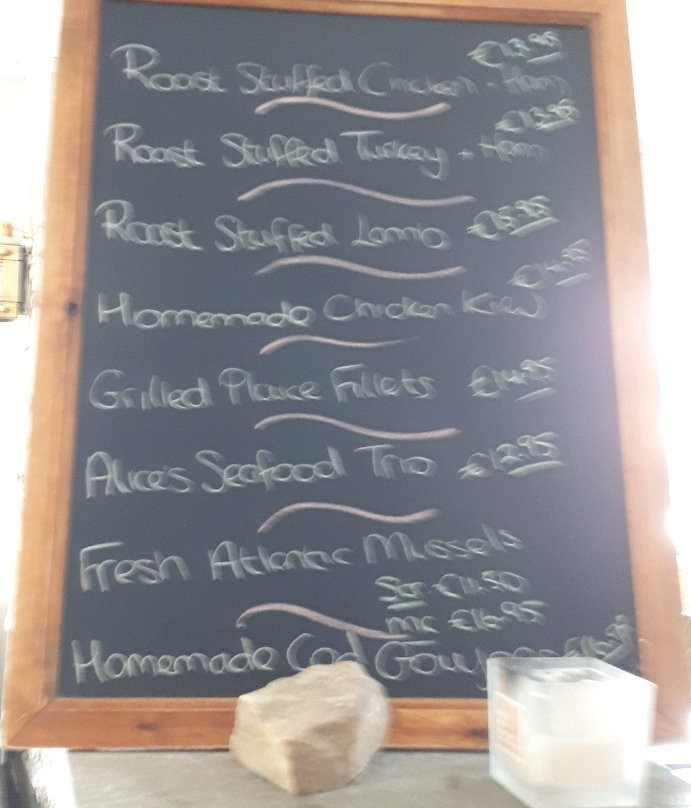 Roast Stuffed Chicken - Ham €13.95
Roast Stuffed Turkey + Ham €13.95
Roast Stuffed Lamb €15.95
Homemade Chicken Kiev
Grilled Plaice Fillets €14.95
Alice's Seafood Trio €12.95
Fresh Atlantic Mussels
Str €11.50
mc €16.95
Homemade Cod Goujons